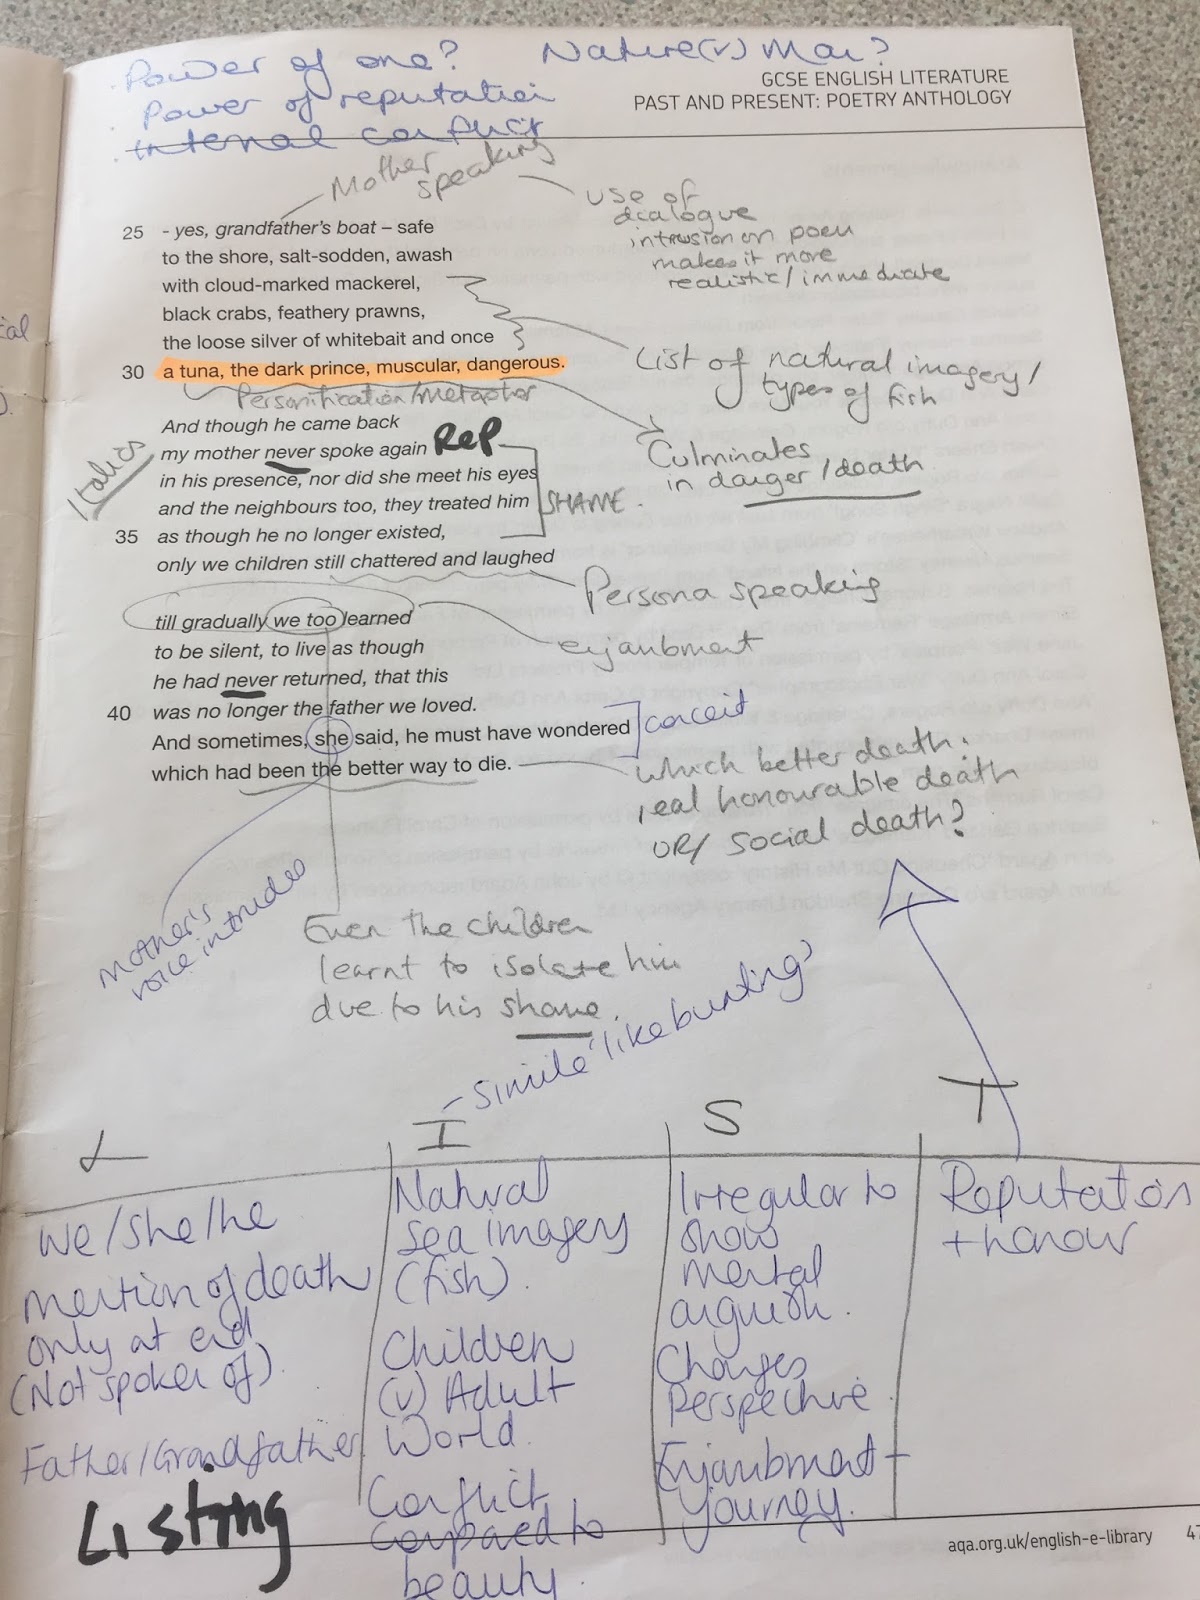 · Power of one? Nature (v) Man?
· Power of reputation
· internal conflict
GCSE ENGLISH LITERATURE
PAST AND PRESENT: POETRY ANTHOLOGY
Mother
speaking
use of
dialogue
intrusion on poem
makes it more
realistic/immediate
25 - yes, grandfather's boat – safe
to the shore, salt-sodden, awash
with cloud-marked mackerel,
black crabs, feathery prawns,
the loose silver of whitebait and once
30 a tuna, the dark prince, muscular, dangerous.
List of natural imagery/
types of fish
Personification/metaphor
Culminates
in danger/death
Italics
And though he came back
my mother never spoke again REP
in his presence, nor did she meet his eyes
and the neighbours too, they treated him SHAME
35 as though he no longer existed,
only we children still chattered and laughed
Persona speaking
till gradually we too learned
to be silent, to live as though
he had never returned, that this
40 was no longer the father we loved.
And sometimes, she said, he must have wondered
which had been the better way to die.
enjanbment
conceit
which better death:
real honourable death
OR/ social death?
mother's
voice intrudes
Even the children
learnt to isolate him
due to his shame
- simile 'like bunting'
L I S T
we/she/he
mention of death
only at end
(Not spoken of).
Father/Grandfather
Listing
Natural
sea imagery
(fish).
Children
(v) Adult
World.
Conflict
compared to
beauty.
Irregular to
show
mental
anguish.
Changes
Perspective
Enjanbment -
journey.
Reputation
+ honour
aqa.org.uk/english-e-library 47